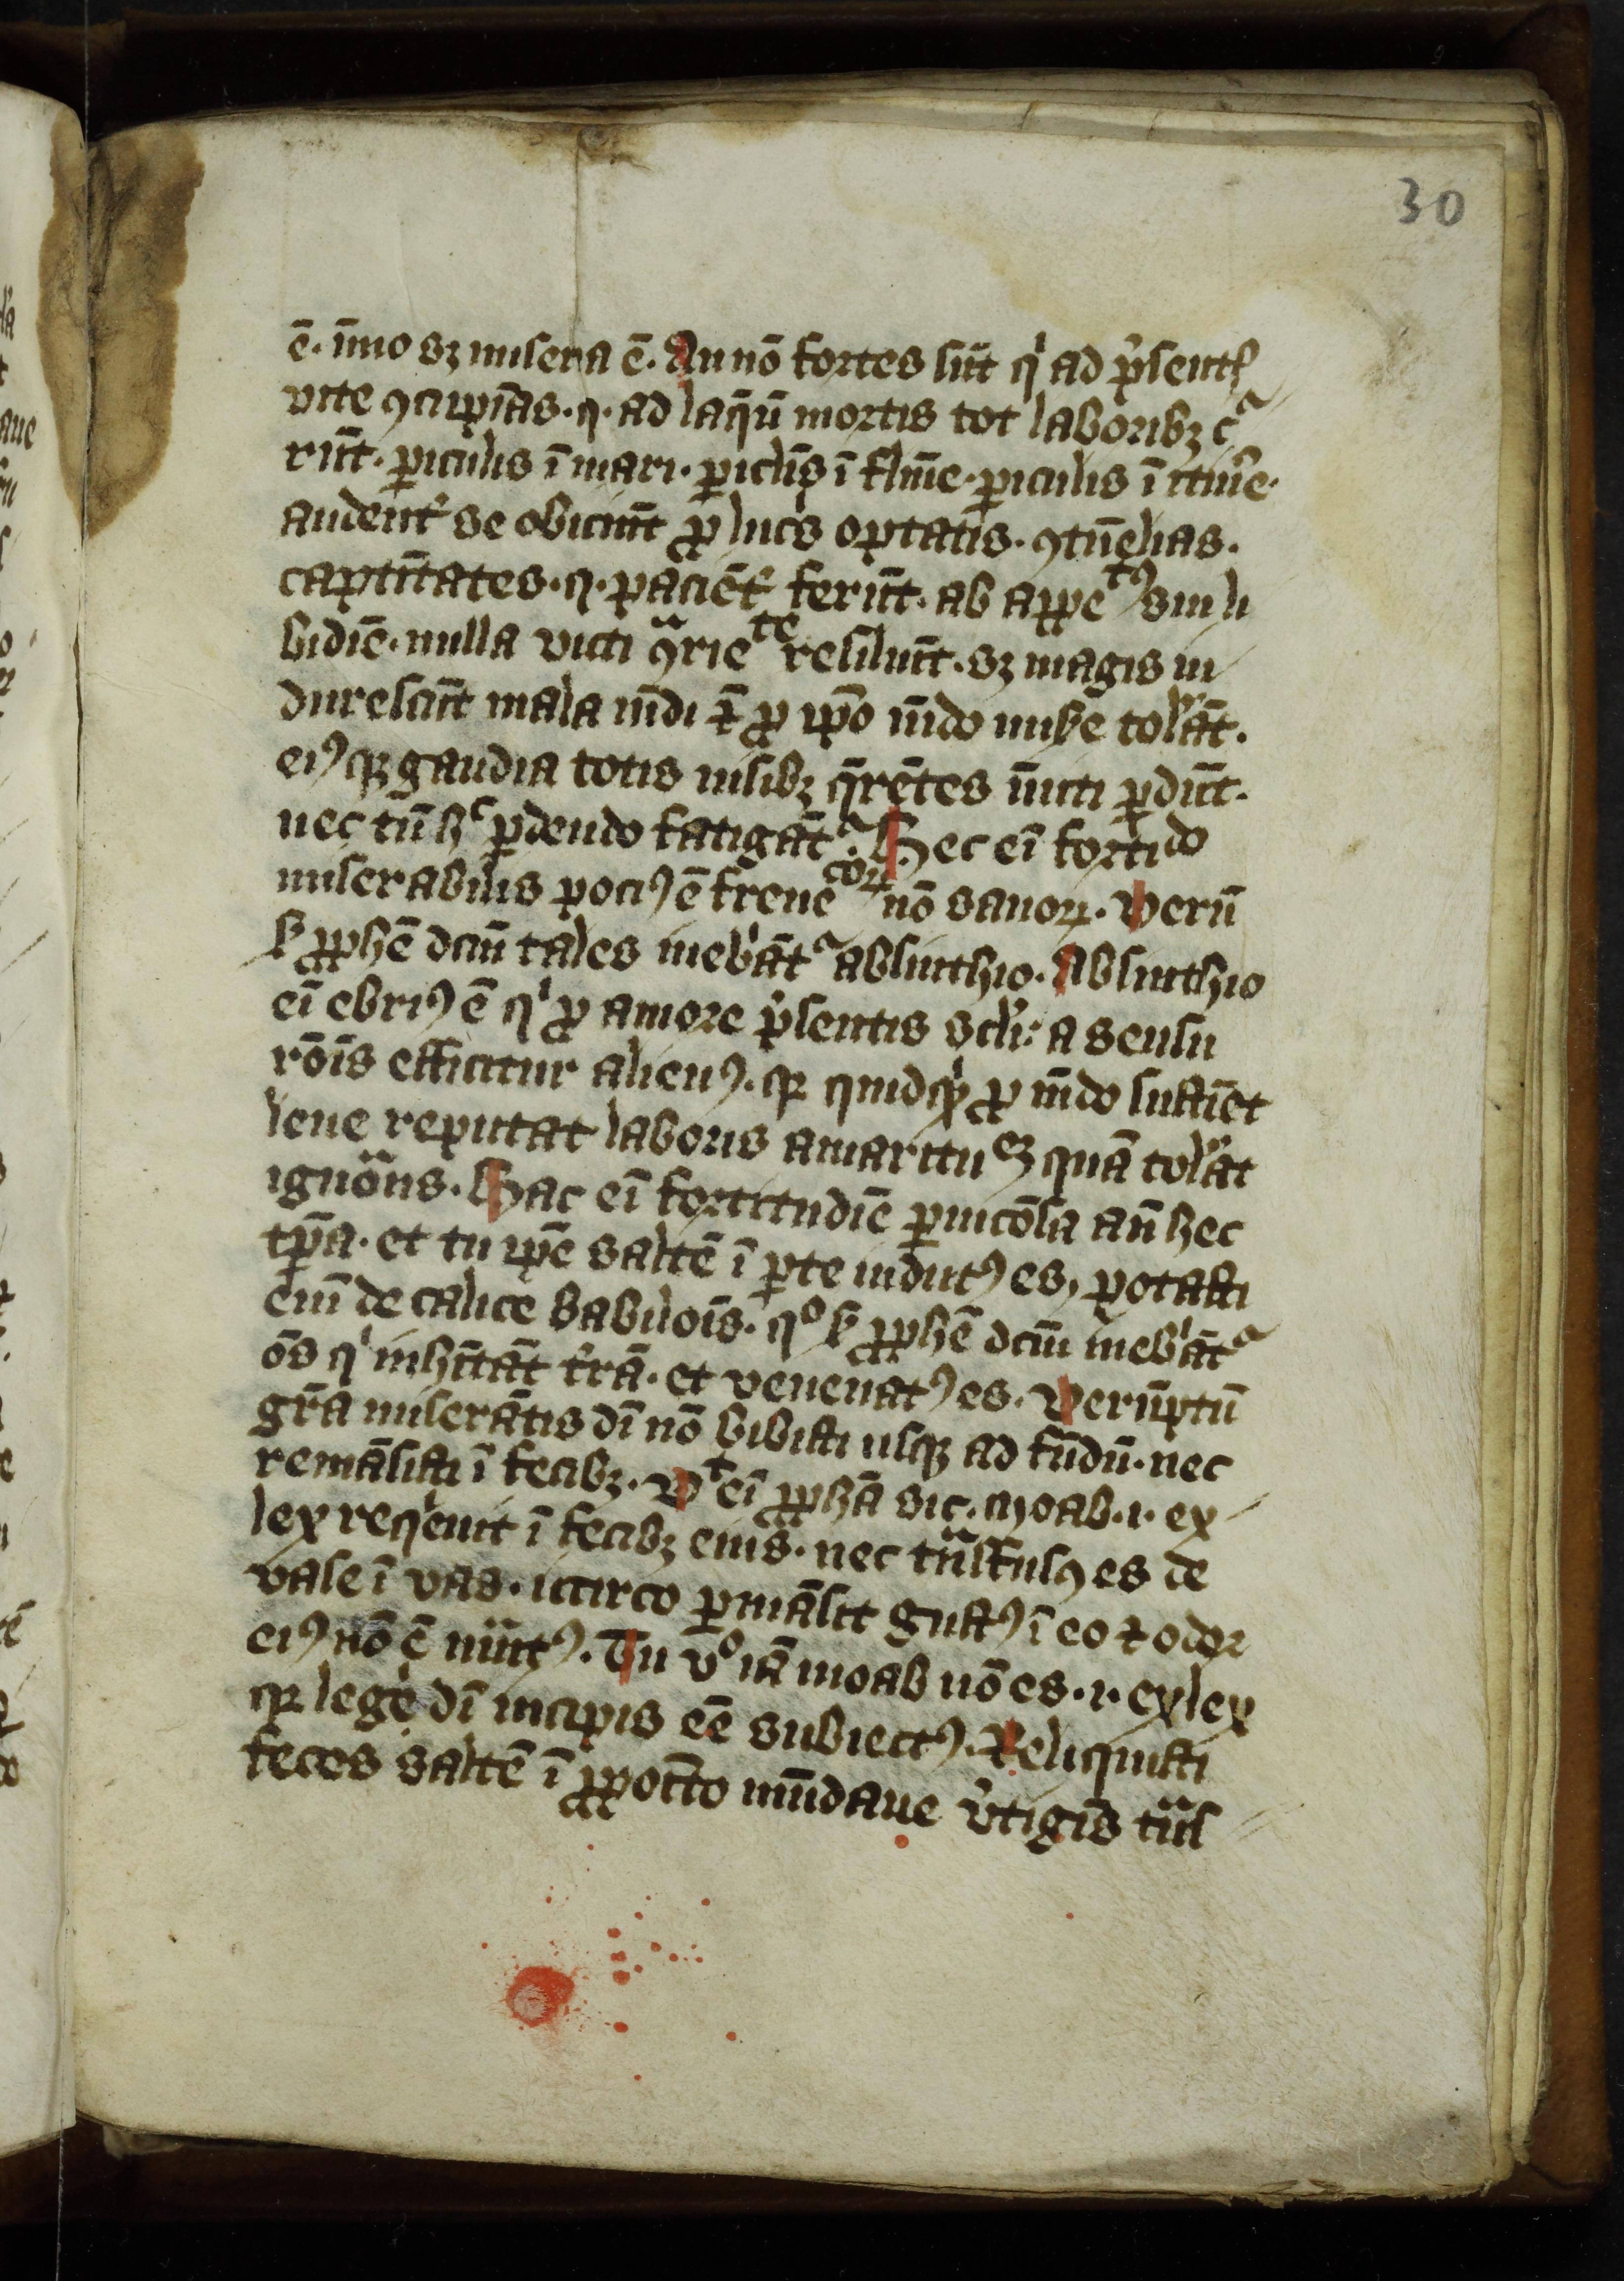 30
ē. īmo sꝫ misera ē. An nō fortes sūt qͥ ad p̄sentꝭ
vite ꝯcupīas. q. ad laq̄ū mortis tot laboribꝫ cᷓ
rūt. ꝑiculis ī mari. ꝑiclīs ī flūīe. ꝑiculis ī itinͥe.
audent᷑ se obiciūt ꝓ lucͥs optatis. ꝯtūelias.
captītates. q. pacient᷑ ferūt. ab appetꝰ sui li
bidīe. nulla victi ꝯᷓrietͤ resiliūt. sꝫ magis in
durescūt mala mūdi ⁊ ꝓ ip̄o mūdo tolͥāt.
eiꝰ qꝫ gaudia totis nisibꝫ q̄rētes īuicti ꝑdūt.
nec tn̄ hͨ ꝑdendo fatigātᷓ. Hec eī fortido
miserabilis pociꝰ ē frenecoꝝ nō sanoꝝ. Verū
ẜ ꝓphē dcm̄ tales inebͥātᷓ absinthio. Absinthio
eī ebriꝰ ē qͥ ꝓ amore p̄sentis sclͥi: a sensu
rōis efficitur alienꝰ. qꝫ quidqͥd ꝓ mūdo sustīet
leue reputat laboris amarituēꝫ quā tolͥat
ignoᷓns. Hac eī fortitudīe ꝑnicōsa an̄ hec
tp̄a. et tu ip̄e saltē ī ꝑte indutꝰ es, potasti
enī de calice babilōis. qͦ ẜ ꝓphē dcm̄ inebͥātᷓ
ōs qͥ inhītāt t᷑rā. et venenatꝰ es. Verūptn̄
gr̄a miserātis dī nō bibisti usqꝫ ad fūdū. nec
remāsisti ī fecibꝫ. Vͭ eī ꝓphā sic. moab. i. ex
lex reqͥeuit ī fecibꝫ suis. nec tᷓnsfusꝰ es de
vase ī vas. iccirco ꝑmāsit gustꝰ ī eo ⁊ odor
eiꝰ nō ē mutꝰ. Tu vͦ iā moab nō es. i. exlex
qꝫ legͥ dī incipis eē subiectꝰ. Reliquisti
feces saltē ī ꝓpoīto mūdane v᷑tigīs tᷓns